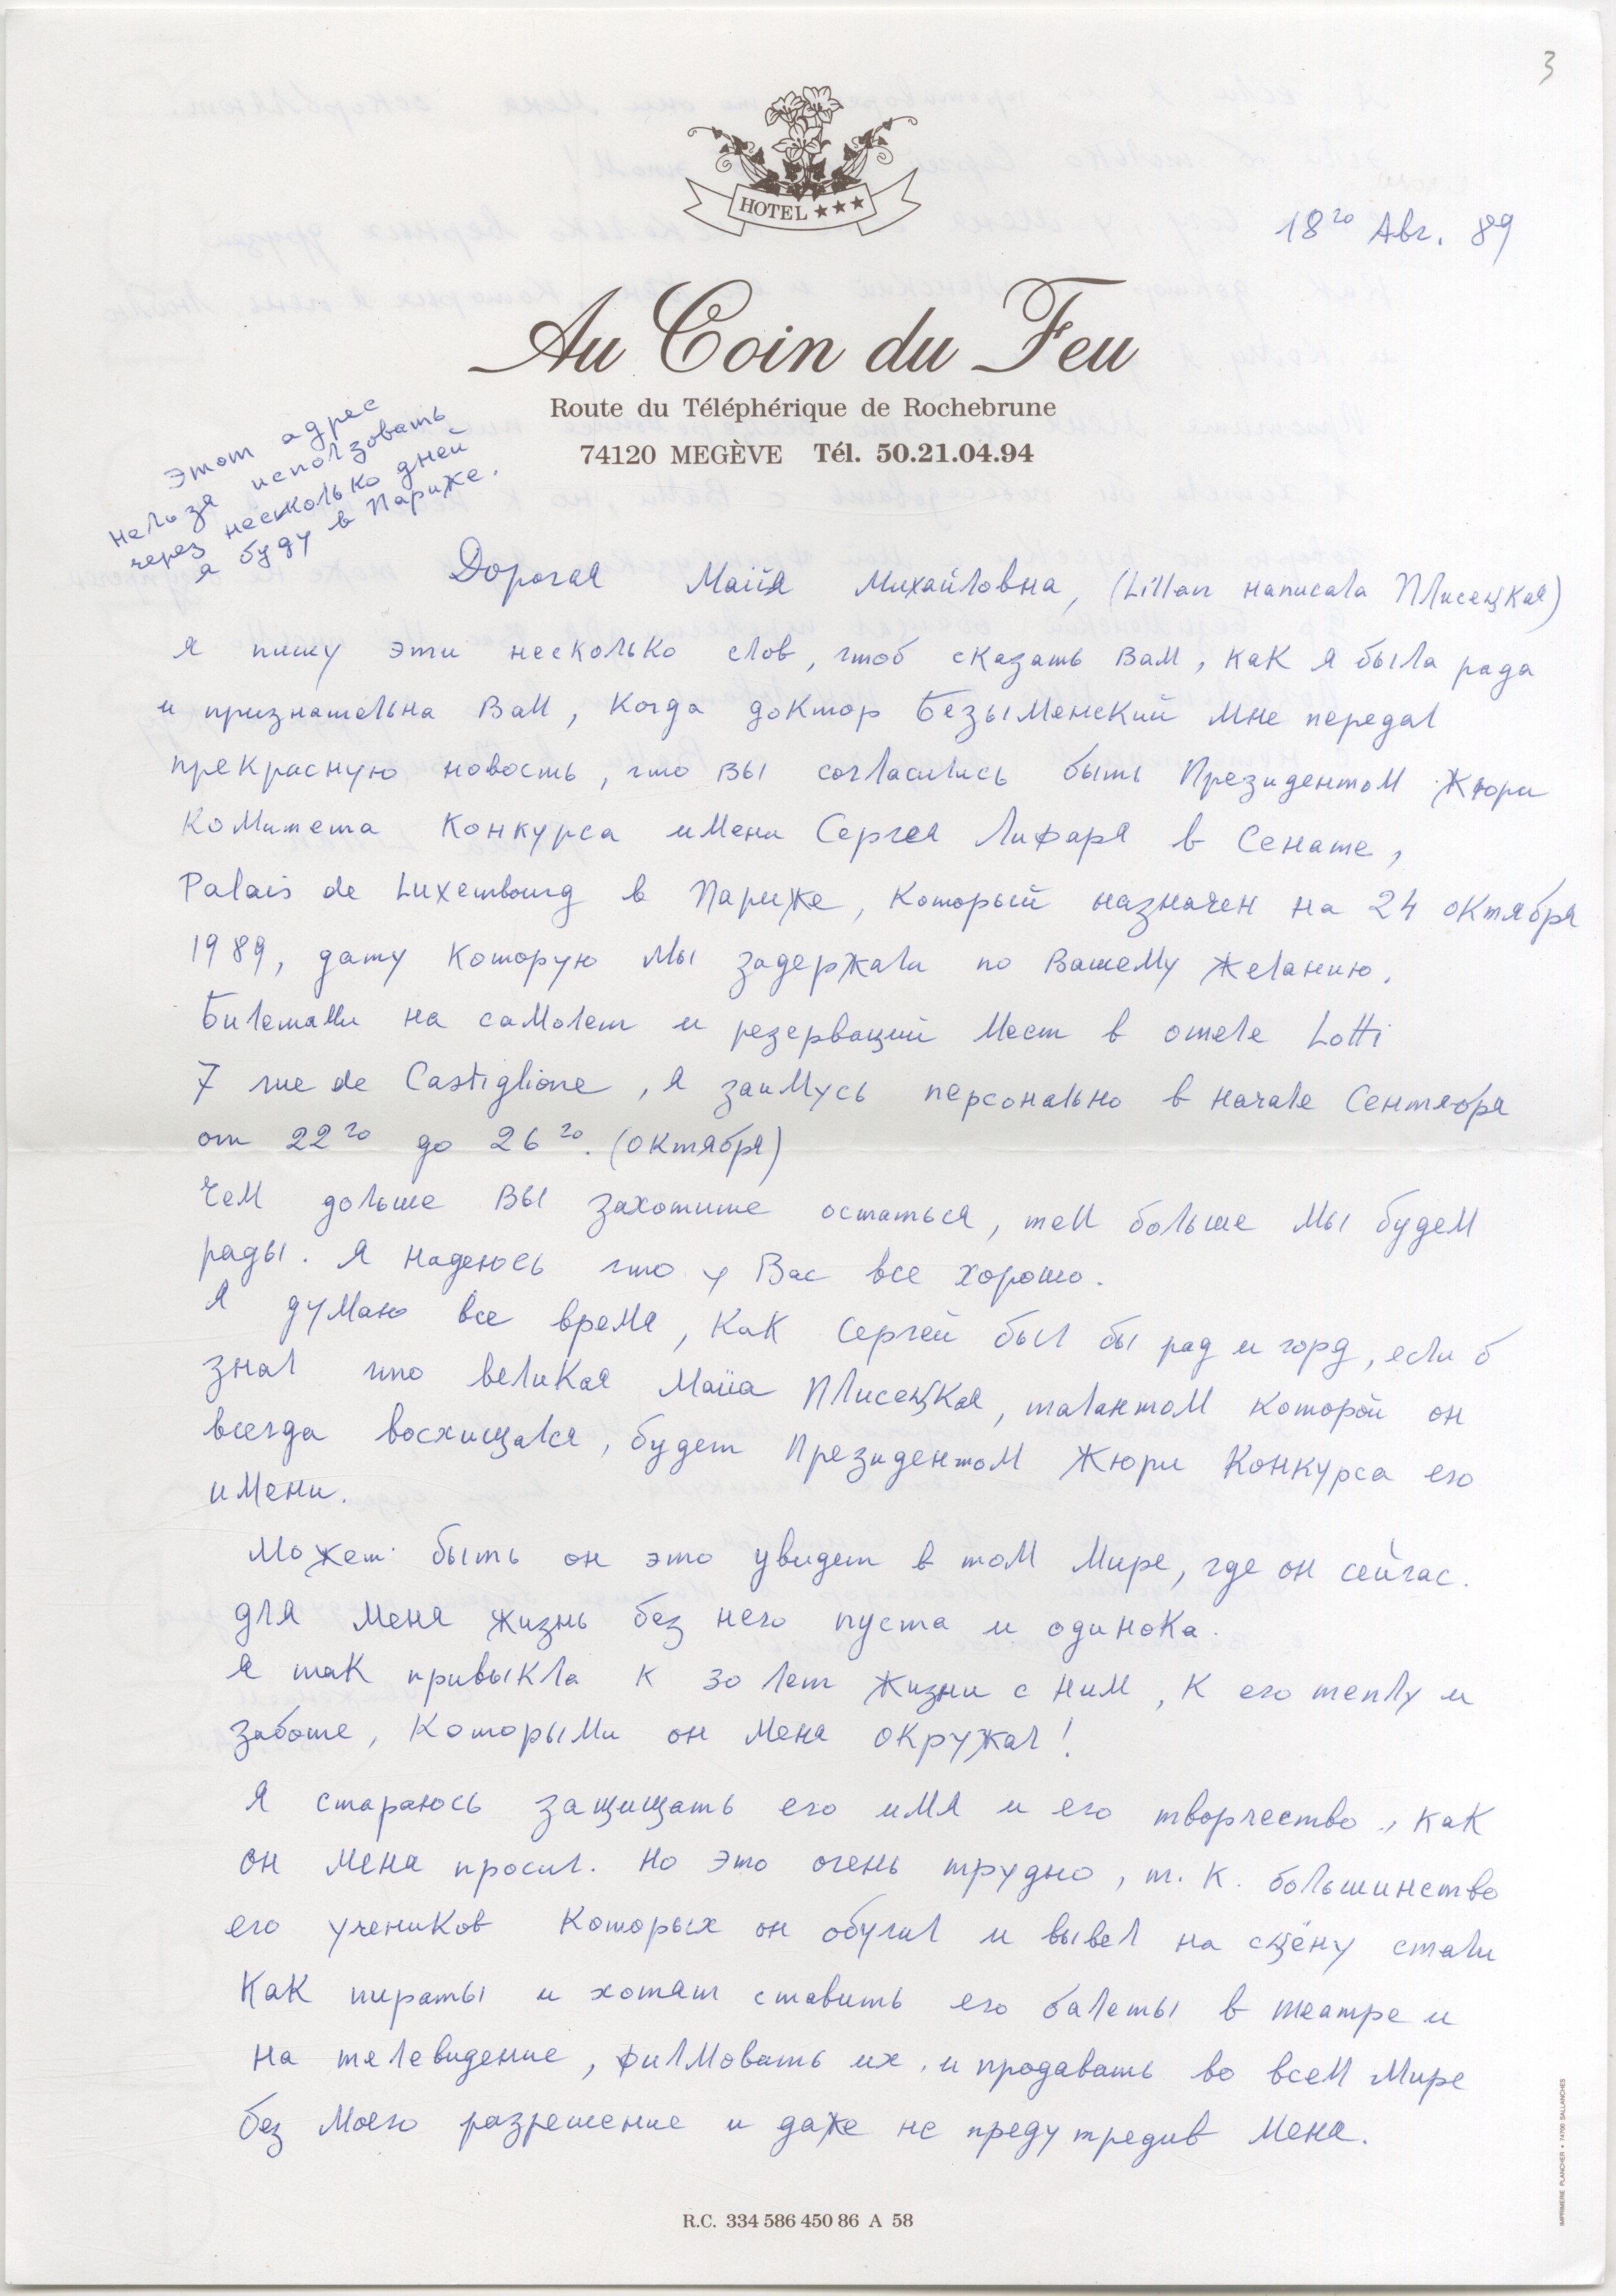 3
HOTEL ★★★
18го Авг. 89
Au Coin du Feu
Route du Téléphérique de Rochebrune
74120 MEGÈVE Tél. 50.21.04.94
Этот адрес
нельзя использовать
через несколько дней
я буду в Париже.
Дорогая Майя Михайловна, (Lillan написала Плисецкая)
я пишу эти несколько слов, чтоб сказать Вам, как я была рада
и признательна Вам, когда доктор Безыменский мне передал
прекрасную новость, что Вы согласились быть Президентом Жюри
Комитета Конкурса имени Сергея Лифаря в Сенате,
Palais de Luxembourg в Париже, который назначен на 24 октября
1989, дату которую мы задержали по Вашему желанию.
Билетами на самолет и резерваций мест в отеле Lotti
7 rue de Castiglione, я займусь персонально в начале Сентября
от 22го до 26го. (октября)
Чем дольше Вы захотите остаться, тем больше мы будем
рады. Я надеюсь что у Вас все хорошо.
Я думаю все время, как Сергей был бы рад и горд, если б
знал что великая Майа Плисецкая, талантом которой он
всегда восхищался, будет Президентом Жюри Конкурса его
имени.
Может быть он это увидет в том мире, где он сейчас.
Для меня жизнь без него пуста и одинока.
Я так привыкла к 30 лет жизни с ним, к его теплу и
заботе, которыми он меня окружал!
Я стараюсь защищать его имя и его творчество, как
он меня просил. Но это очень трудно, т. к. большинство
его учеников которых он обучил и вывел на сцену стали
как пираты и хотят ставить его балеты в театре и
на телевидение, филмовать их и продавать во всем мире
без моего разрешение и даже не предутредив меня.
R.C. 334 586 450 86 A 58
IMPRIMERIE PLANCHER • 74700 SALLANCHES